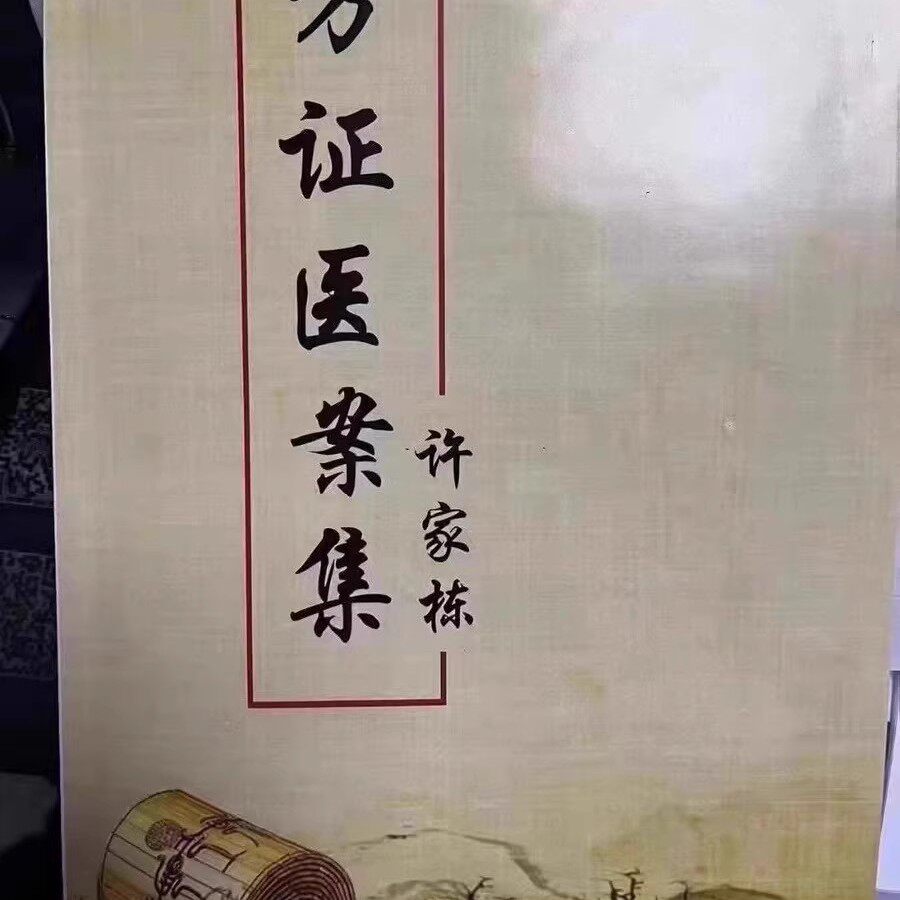 方证医案集
许家栋